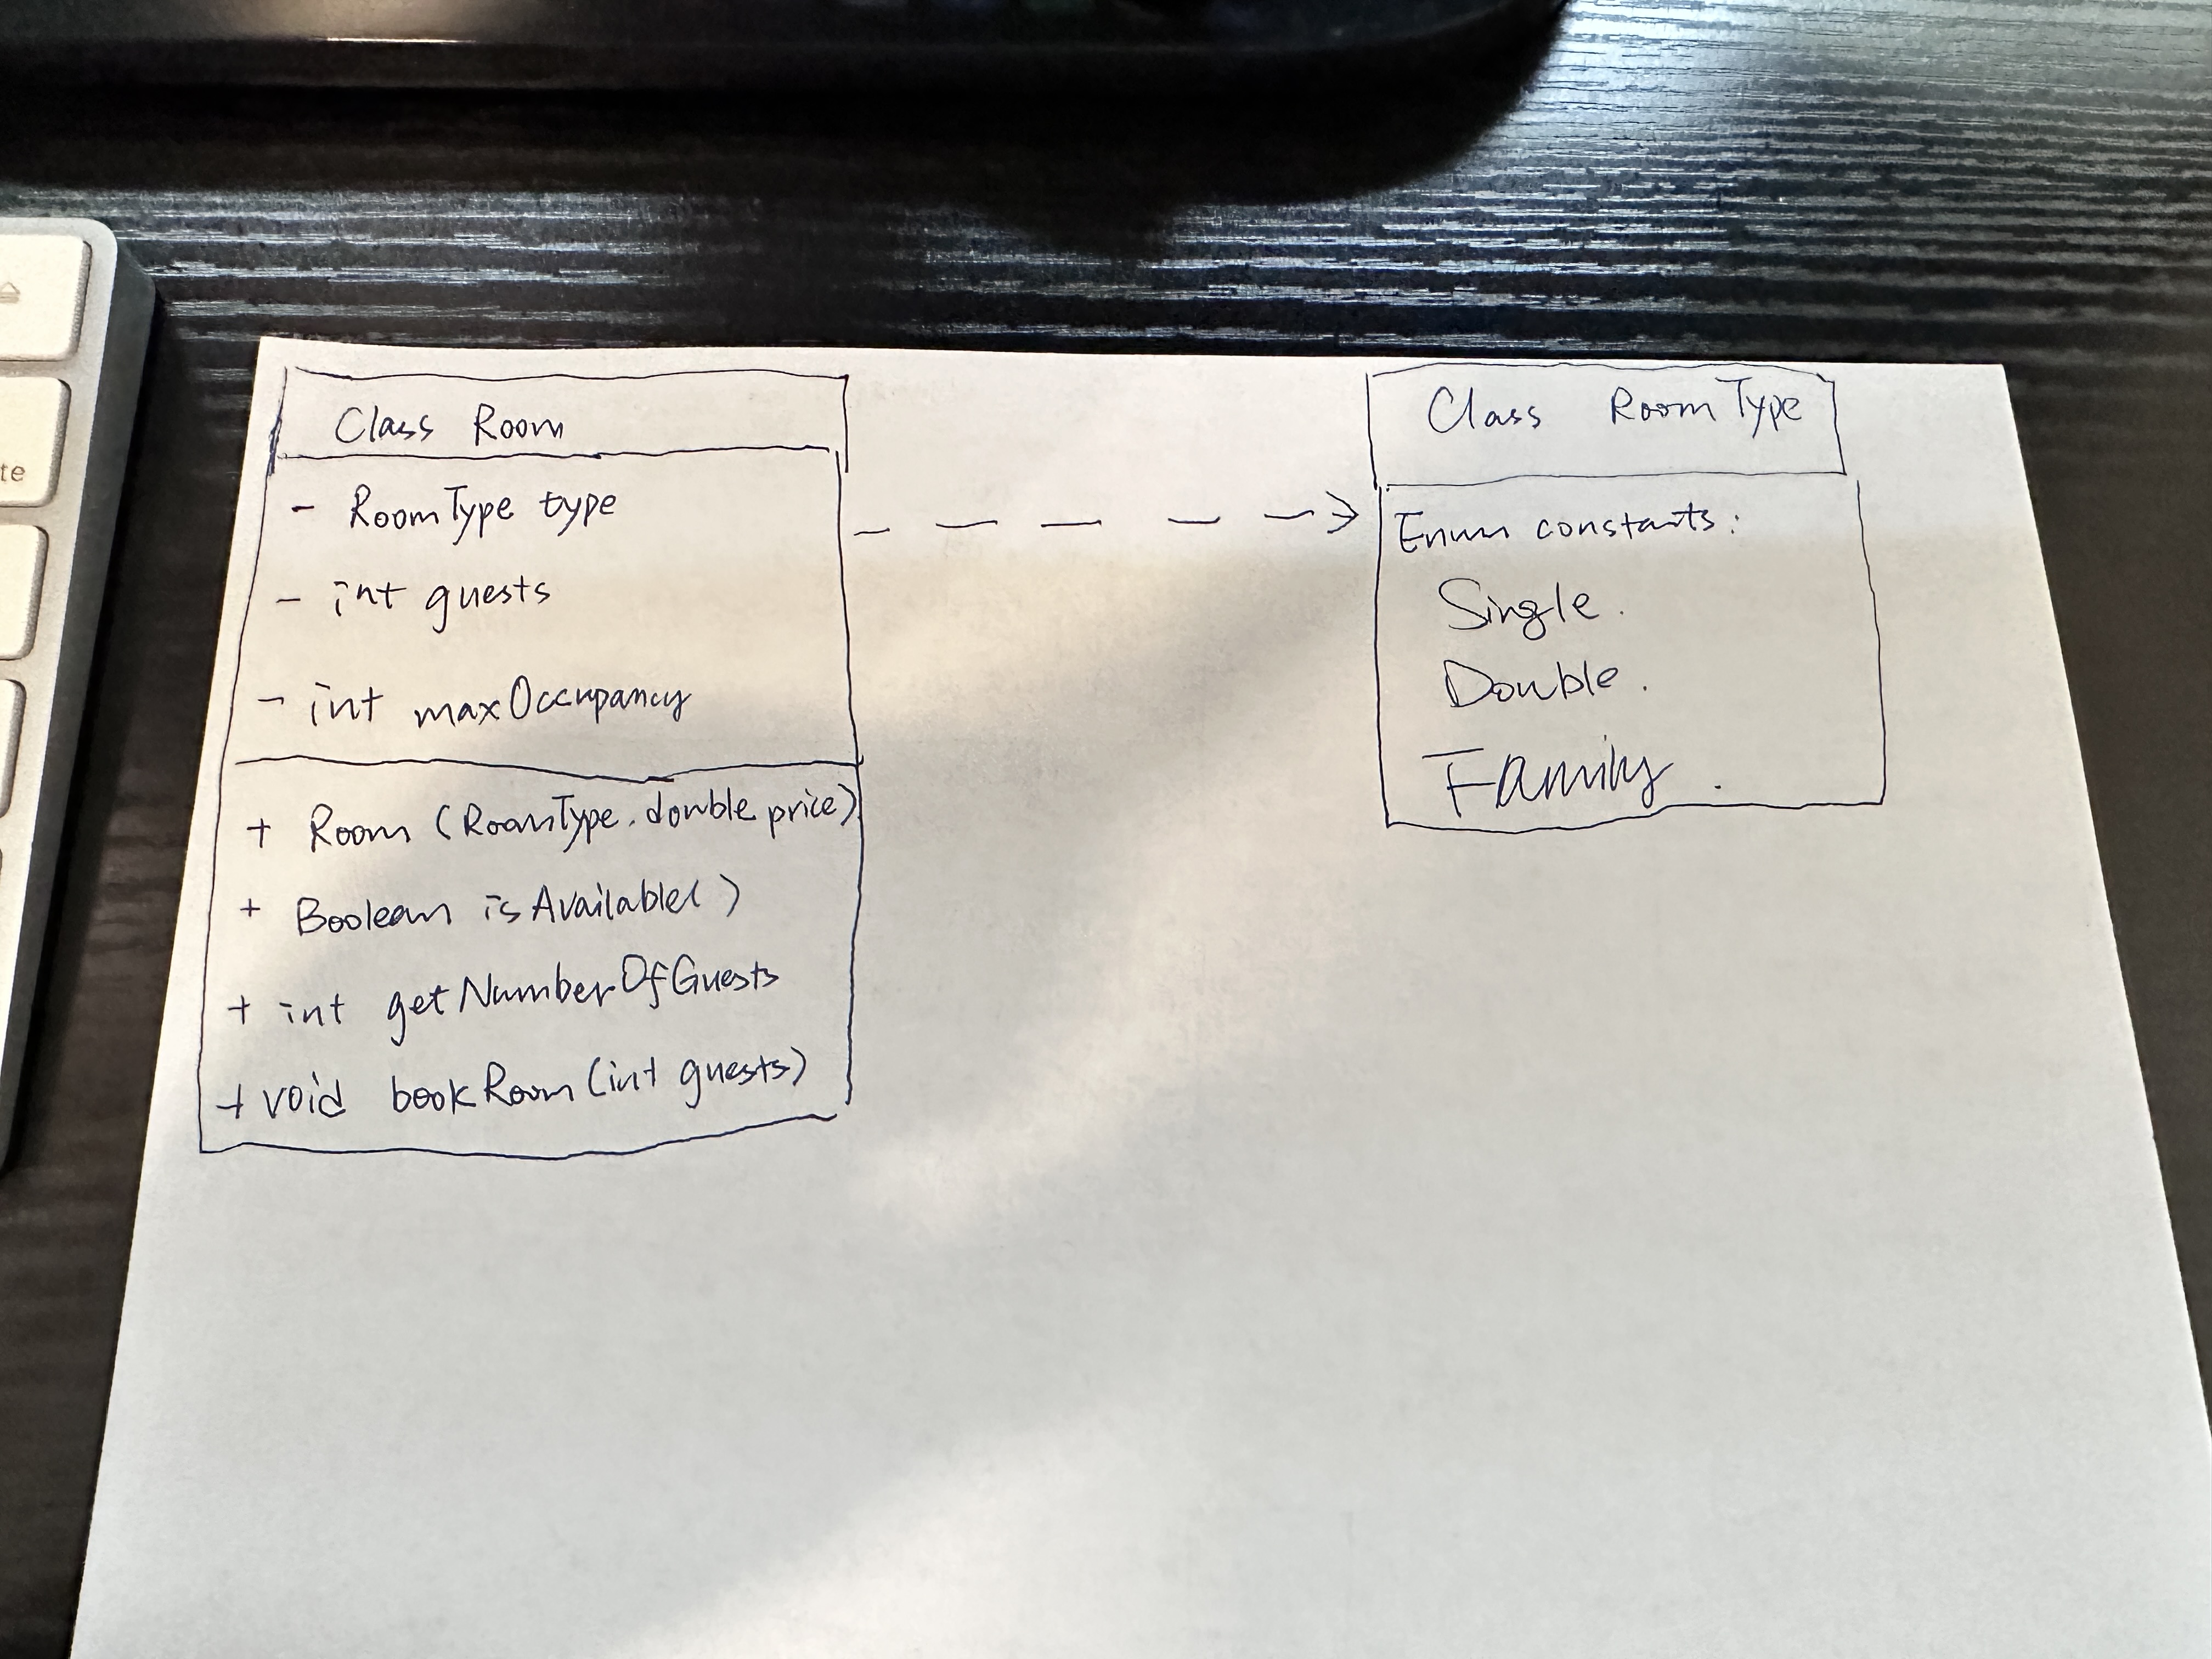 Class Room
- RoomType type
- int guests
- int maxOccupancy
+ Room (RoomType, double price)
+ Boolean isAvailable()
+ int getNumberOfGuests
+ void bookRoom (int guests)
Class RoomType
Enum constants:
Single.
Double.
Family.